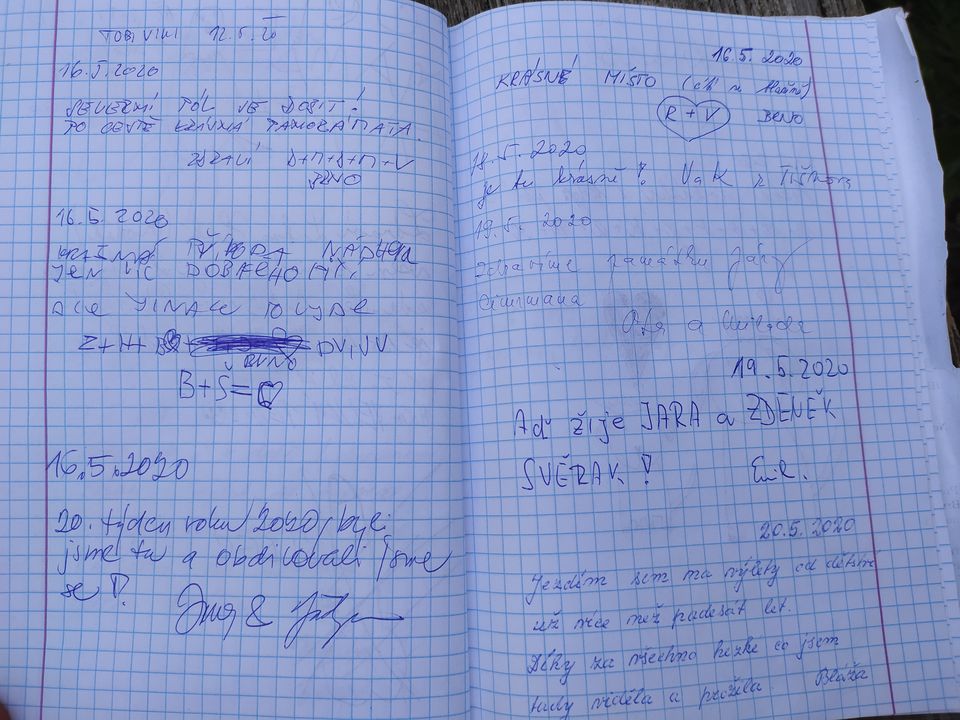 TOBI VIKI 12.5.20
16.5.2020
SEVERNÍ PÓL JE DOBIT!
PO CESTĚ KRÁSNÁ PANORÁMATA.
ZDRAVÍ D+M+D+M+V
BRNO
16.5.2020
KRÁSNÁ PŘÍRODA, NÁDHERA
JEN NIC DOBRÉHO
ALE JINAK TO UJDE
Z+H+
BRNO
B+Š=♡
16.5.2020
20. týden roku 2020, byli
jsme tu a obdivovali jsme
se!
16.5.2020
KRÁSNÉ MÍSTO
R+V BRNO
18.5.2020
je tu krásně! V a K z Tišnova
19.5.2020
Zdravíme památku Járy
Cimrmana
a
19.5.2020
Ať žije JARA a ZDENĚK
SVĚRÁK!
20.5.2020
Jezdím sem na výlety od dětství
už více než padesát let.
Díky za všechno hezké co jsem
tady viděla a prožila. Blaža